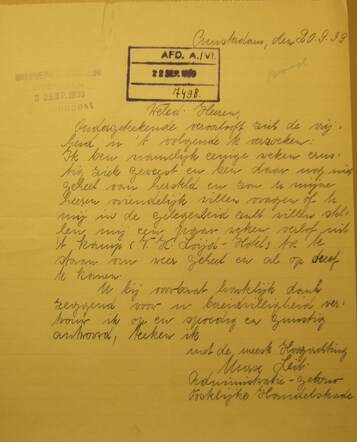 Amsterdam, den 20.9.39
AFD. A./VI.
22 SEP. 1939
7498.
Weled. Heeren,
Ondergetekende veroorlooft zich de vrij-
heid u 't volgende te verzoeken:
Ik ben namelijk eenige weken erns-
tig ziek geweest en ben daar nog niet
geheel van hersteld en zou u mijne
heeren vriendelijk willen vragen of u
mij in de gelegenheid zult willen stel-
len, mij een paar weken verlof uit
't Kamp ( Lloyd-Hotel) toe te
staan om weer geheel en al op dreef
te komen.
U bij voorbaat hartelijk dank
zeggend voor u bereidwilligheid ver-
trouw ik op een spoedig en gunstig
antwoord, teeken ik
met de meeste Hoogachting
Max
Administratie-gebouw
Oostelijke Handelskade